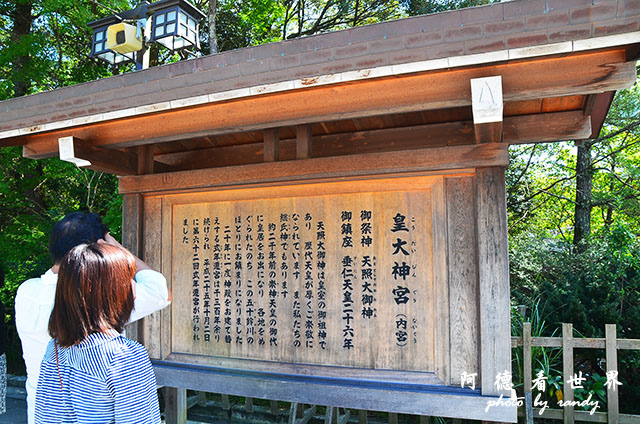 皇大神宮（内宮）
こうたいじんぐう ないくう
御祭神 天照大御神
御鎮座 垂仁天皇二十六年
天照大御神は皇室の御祖神で
あり 歴代天皇が厚くご崇敬に
なられています また私たちの
総氏神でもあります
約二千年前の崇神天皇の御代
に皇居をお出になり 各地をめ
ぐられたのち この五十鈴川の
ほとりにお鎮まりになりました
二十年に一度神殿をお建て替
えする式年遷宮は千三百年余り
続けられ 平成二十五年十月二日
に第六十二回式年遷宮が行われ
ました
阿德看世界
http://
/randy